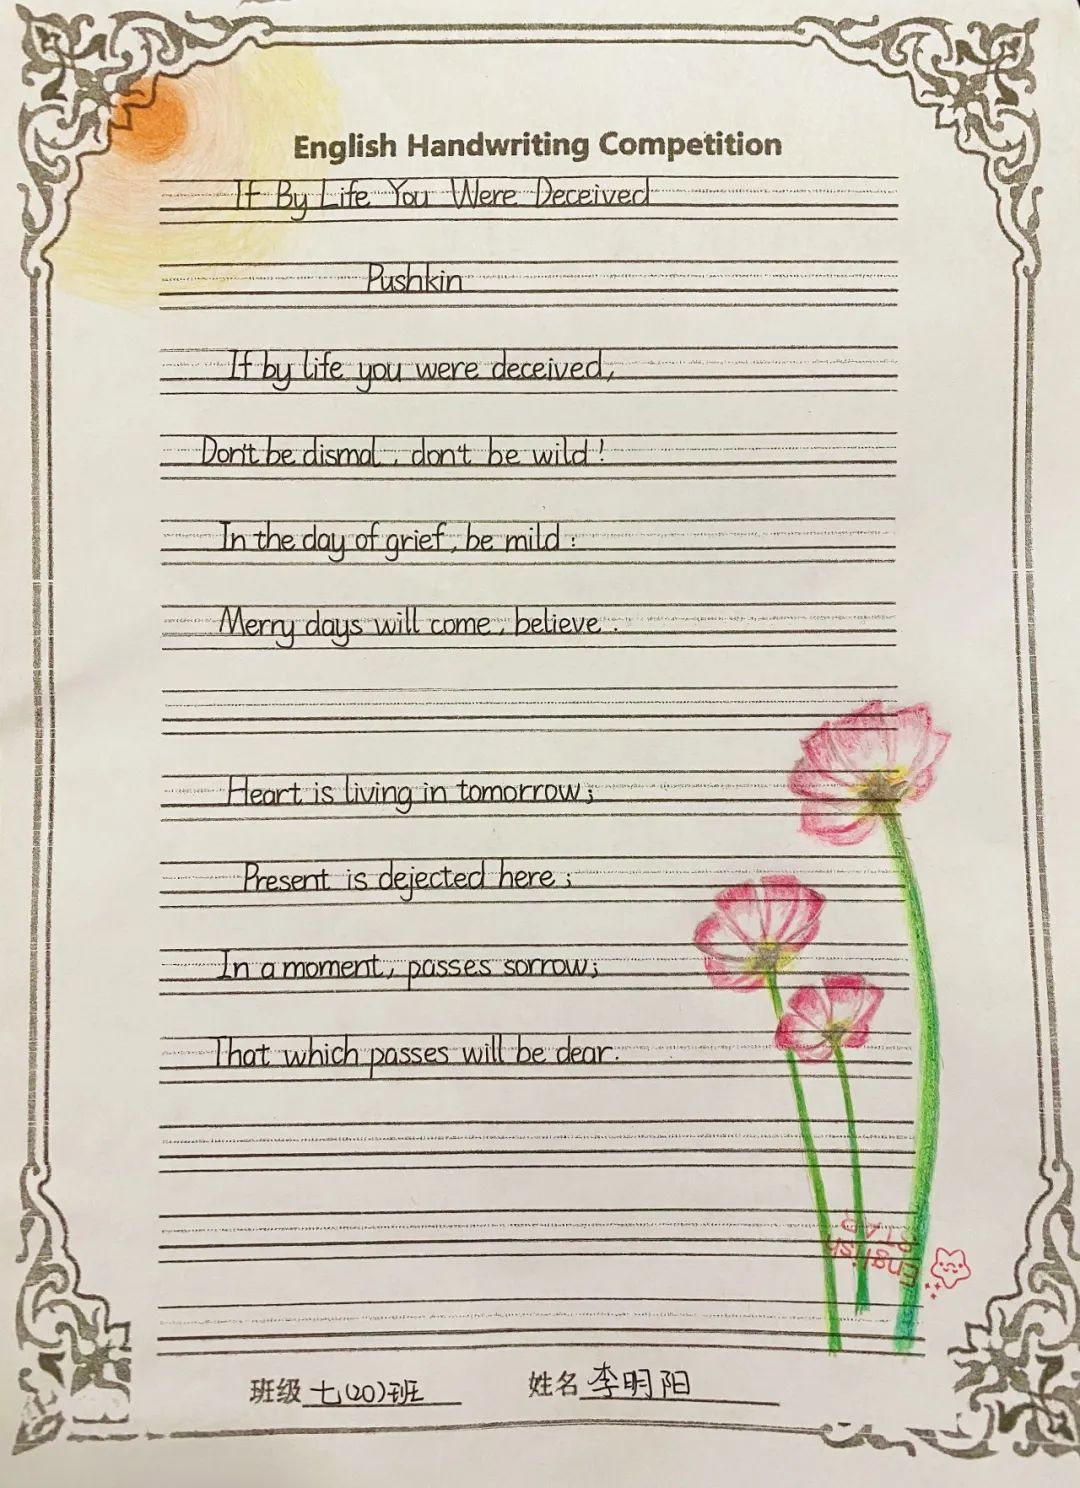 English Handwriting Competition
If By Life You Were Deceived
Pushkin
If by life you were deceived,
Don't be dismal, don't be wild!
In the day of grief, be mild:
Merry days will come, believe.
Heart is living in tomorrow;
Present is dejected here;
In a moment, passes sorrow;
That which passes will be dear.
English
STAR
班级 七(20)班 姓名 李明阳